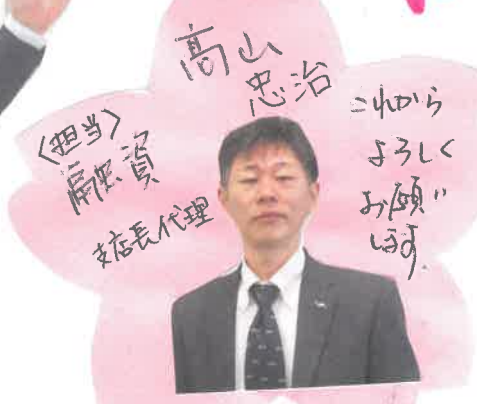 高山
忠治
〈担当〉
融資
支店長代理
これから
よろしく
お願い
します。